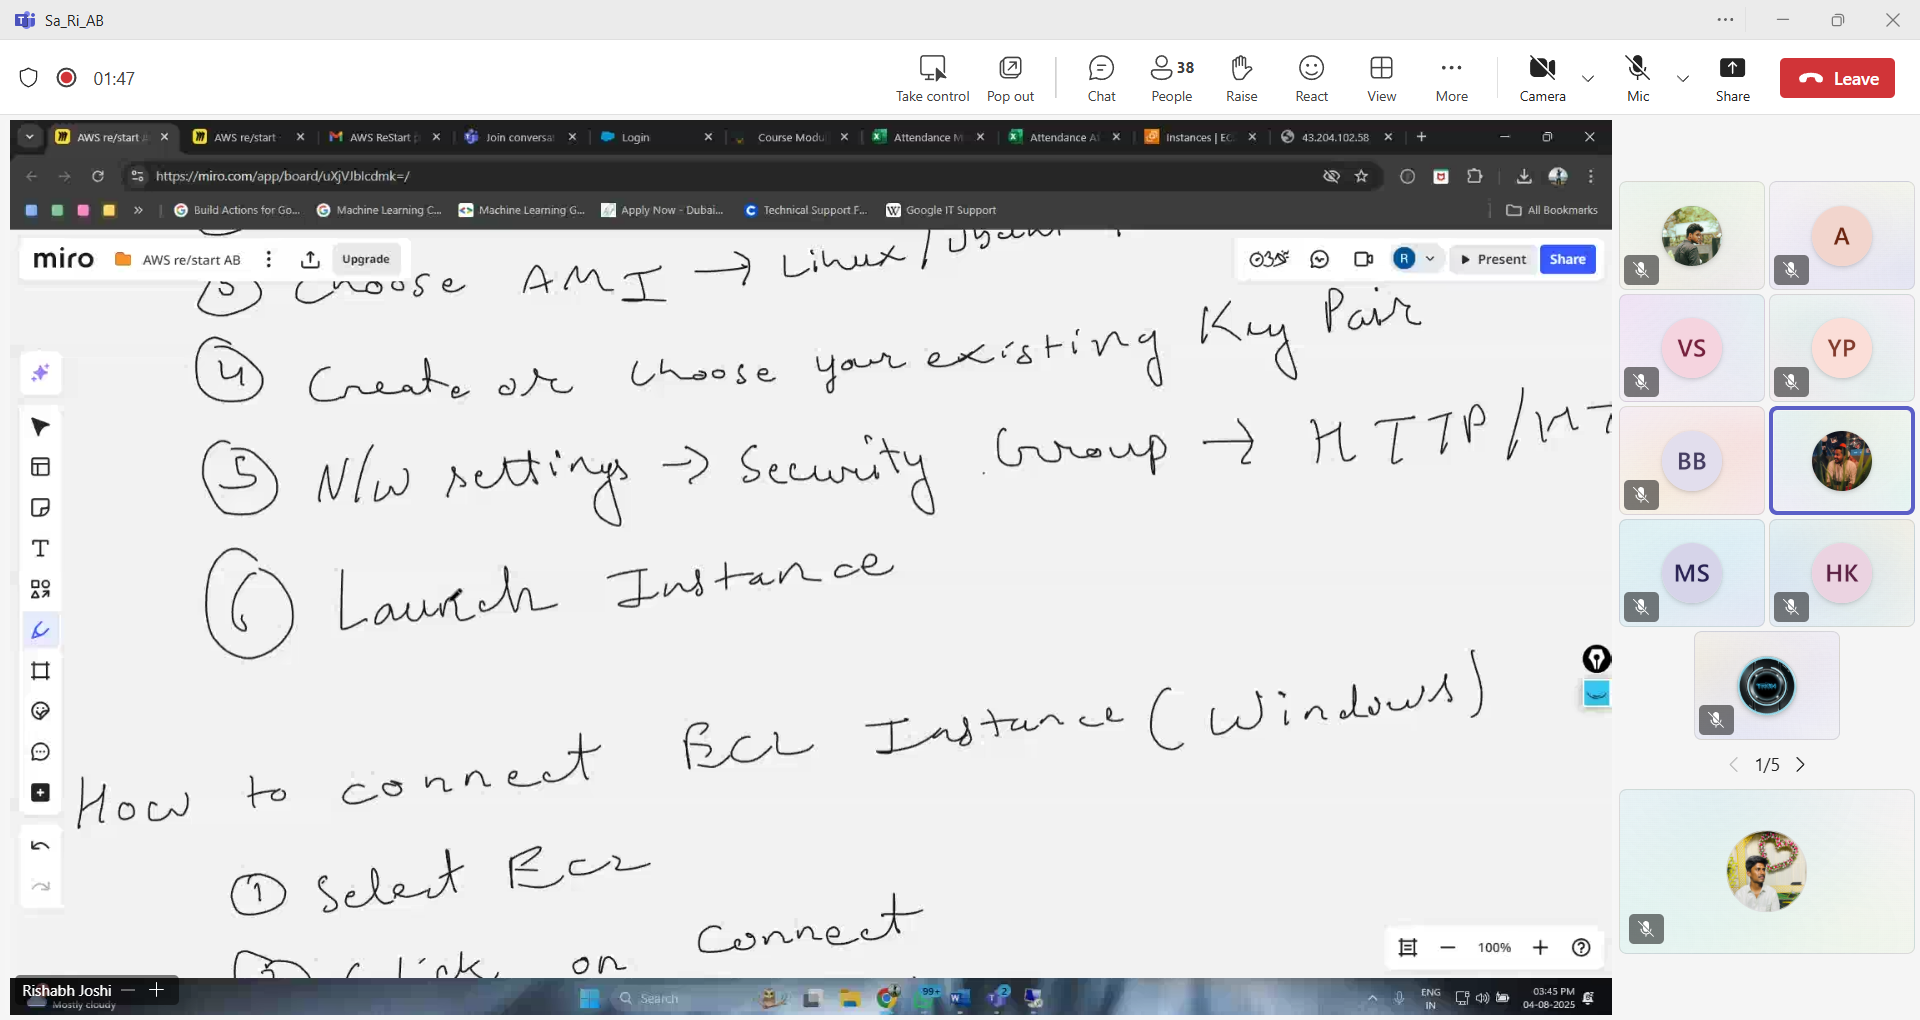 Sa_Ri_AB
01:47
Take control
Pop out
Chat
38
People
Raise
React
View
More
Camera
Mic
Share
Leave
AWS re/start
AWS re/start
AWS ReStart
Join conversa
Login
Course Modul
Attendance M
Attendance A
Instances | EC
43.204.102.58
https://miro.com/app/board/uXjVJblcdmk=/
Build Actions for Go...
Machine Learning C...
Machine Learning G...
Apply Now - Dubai...
Technical Support F...
Google IT Support
All Bookmarks
miro
AWS re/start AB
Upgrade
R
Present
Share
Choose AMI → Linux/Ubun
4 Create or choose your existing Key Pair
5 N/W settings → Security Group → HTTP/HT
6 Launch Instance
How to connect EC2 Instance (Windows)
1 Select EC2
Click on Connect
100%
Rishabh Joshi
Mostly cloudy
Search
99+
2
ENG
IN
03:45 PM
04-08-2025
A
VS
YP
BB
MS
HK
1/5